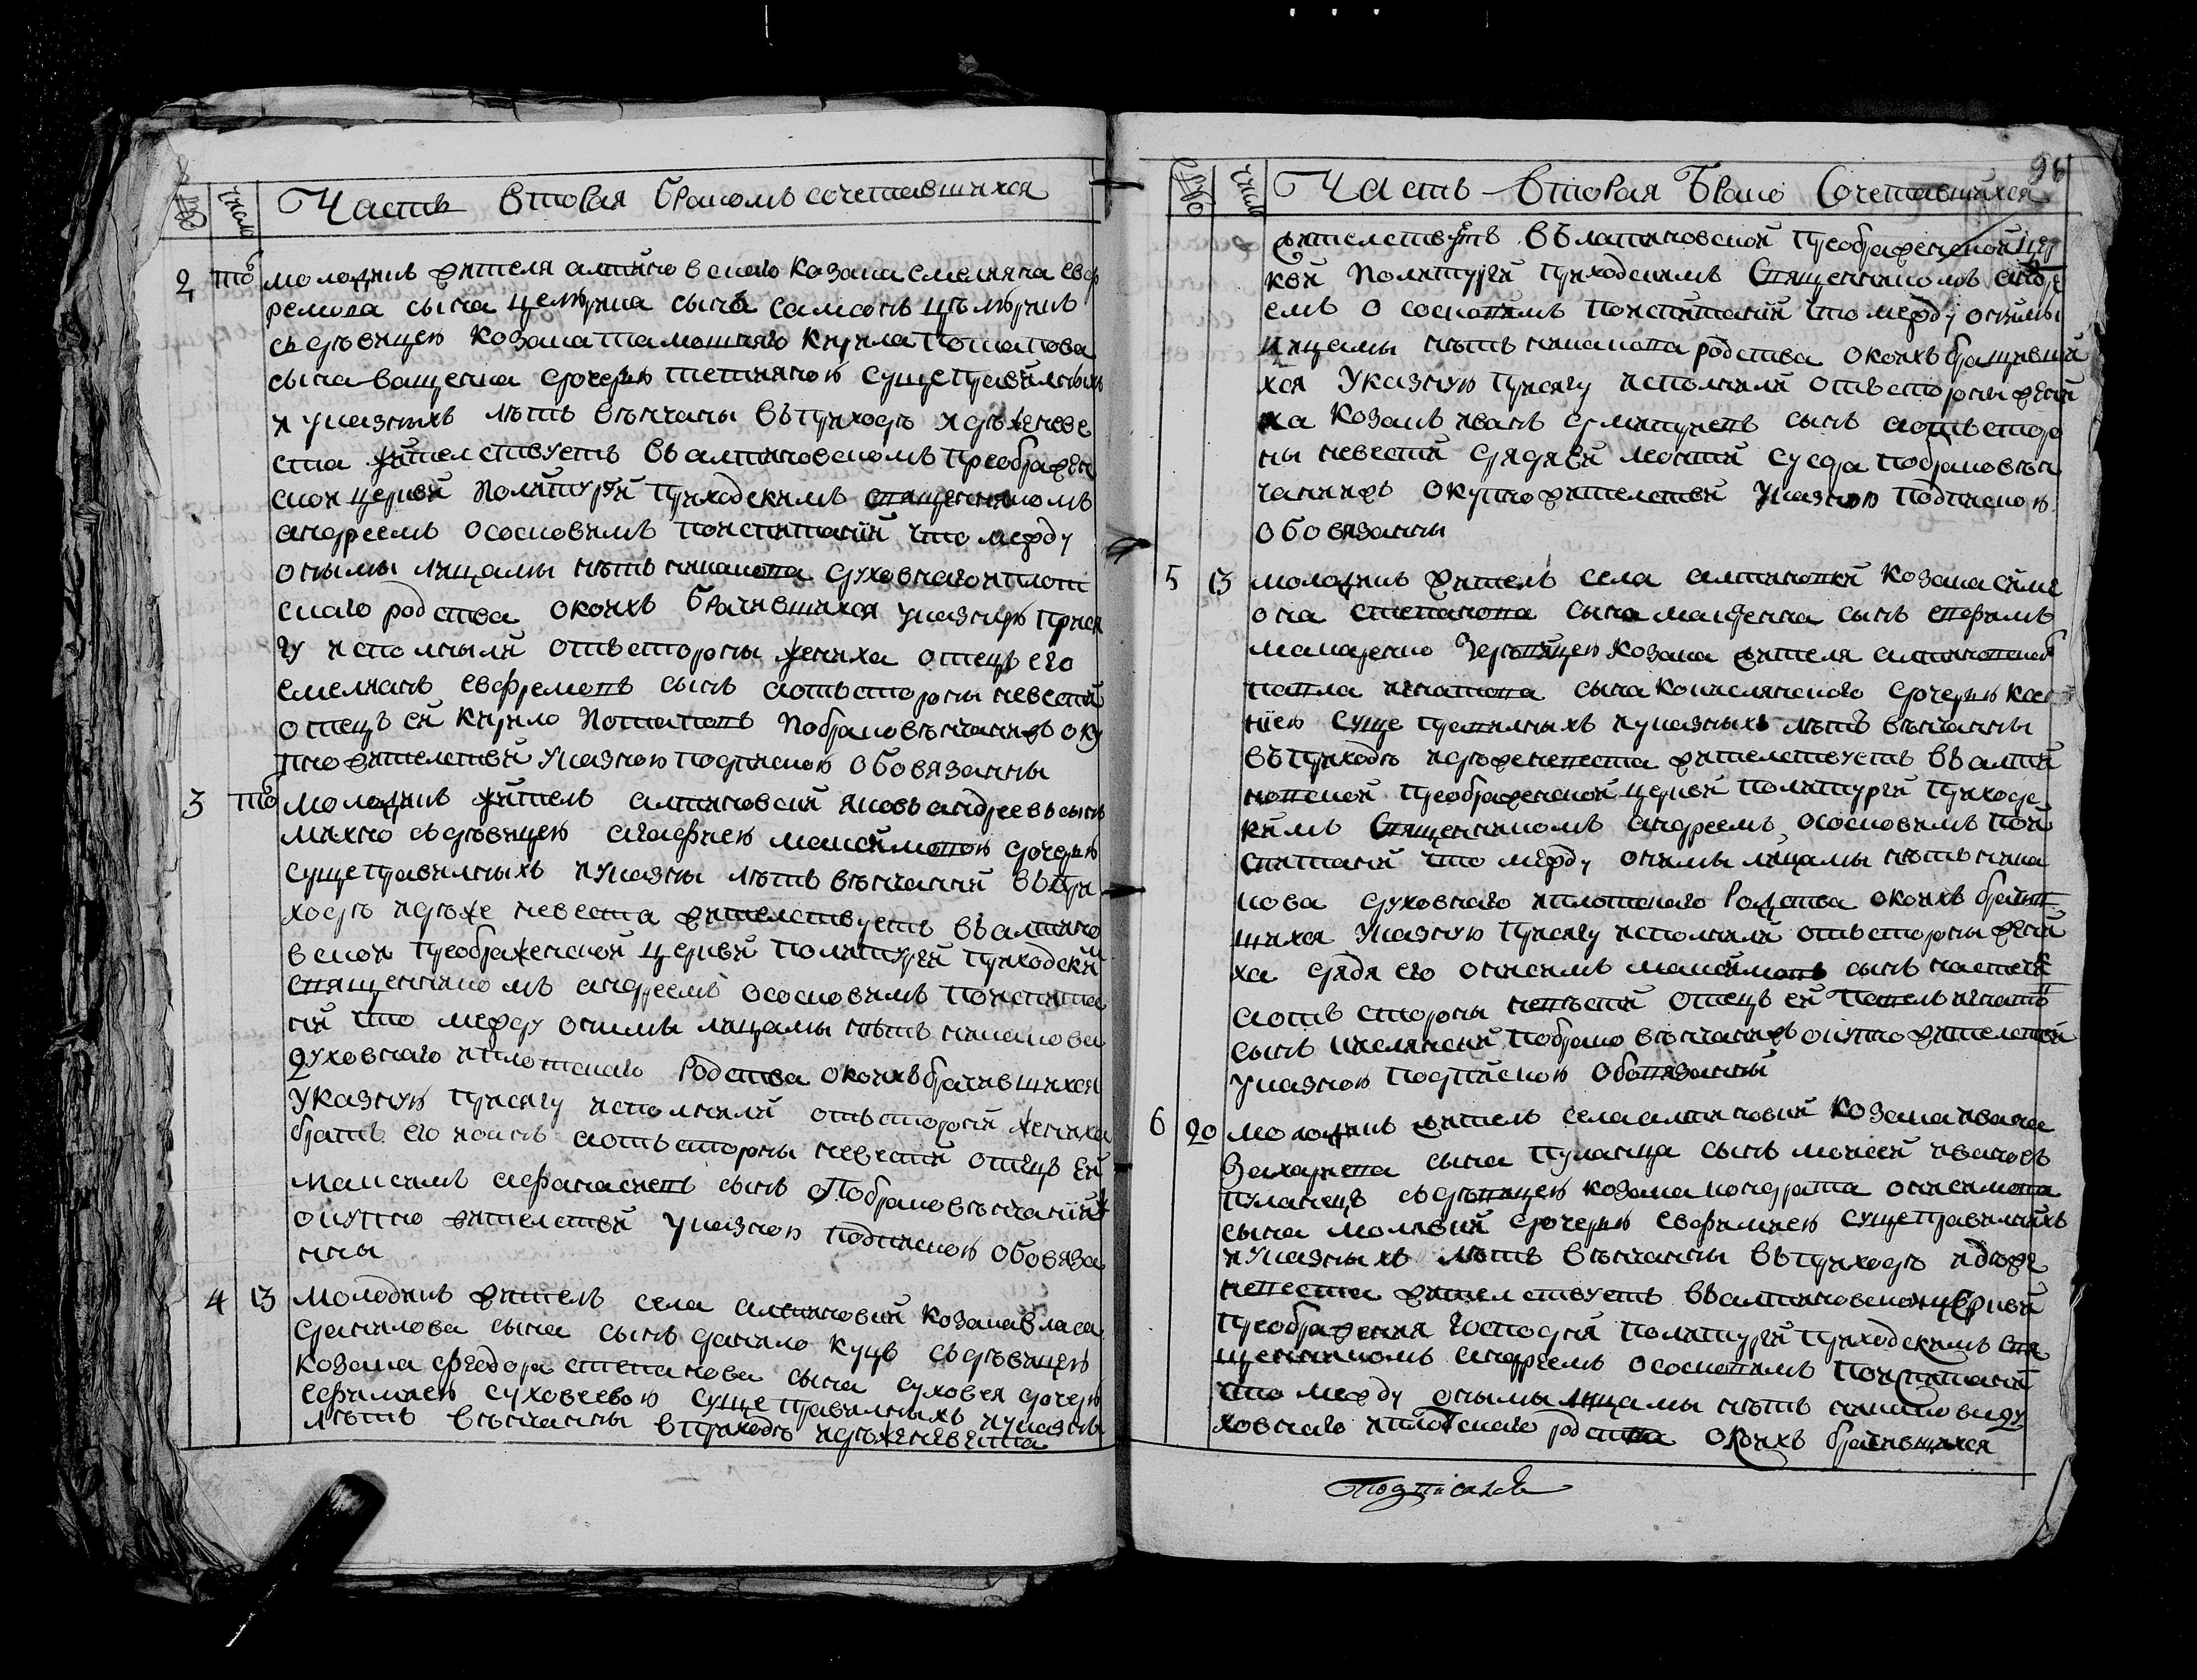 Часть вторая бракомъ сочетавшихся
число
2 того молодикъ жителя алтиновского козака емеляна евф
ремова сына целюрика сынъ самсонъ цѣлюрикъ
съ дѣвицею козака тамошнего кирила потапова
сына ващенка дочерью тетияною суще правилныхъ
и указныхъ лѣтъ вѣнчаны въ приходѣ идѣ же неве
ста жителствуетъ въ алтиновскомъ преображен
ской церквѣ по литургіи приходскимъ священникомъ
андреемъ о основимъ по испитаніи что между
оными лицами нѣтъ никакова духовнаго и плот
скаго родства о коихъ брачившихся указную прися
гу исполнили отъ стороны жениха отецъ его
емелианъ евфремовъ сынъ а отъ стороны невести
отецъ ей кирило потаповъ по браковѣнчаніи въ оку
пно жителствѣ указною подпискою обовязанны
3 того молодикъ житель алтиновскій яковъ андреевъ сынъ
михно съ дѣвицею агафиею максимовою дочерью
суще правилныхъ и указны лѣтъ вѣнчанни въ при
ходѣ идѣ же невеста жителствуетъ въ алтино
вской преображенской церквѣ по литургіи приходски
священникомъ андреемъ о основимъ по испита
ніи что между оными лицами нѣтъ никакова
духовнаго и плотскаго родства о коихъ брачившихся
указную присягу исполнили отъ стороны жениха
братъ его иоанъ а отъ стороны невести отецъ ей
максимъ афанасиевъ сынъ по браковѣнчаніи
окупно жителствѣ указною подпискою обовяза
нны
4 13 молодикъ житель села алтиновки козака власа
данилова сына сынъ данило куцъ съ дѣвицею
козака федора степанова сына суховея дочерю
ефимиею суховеевою суще правилныхъ и указнъ
лѣтъ вѣнчанны въ приходѣ идѣ же невеста
98
число Часть вторая Брако Сочетавшихся
жителствуетъ въ алтиновской преображенской цер
квѣ по литургіи приходскимъ священникомъ андре
емъ о основимъ по испитаніи что между оными
лицами нѣтъ никакова родства о коихъ брачивши
хся указную присягу исполнили отъ стороны жени
ха козакъ иванъ дмитриевъ сынъ а отъ сторо
ны невести дядя ей леонтій сусда по браковѣн
чаніи въ окупно жителствѣ указною подпискою
обовязанны
5 13 молодикъ житель села алтиновки козака симе
она степанова сына макаренка сынъ ефимъ
макаренко з дѣвицею козака жителя алтиновског
павла игнатова сына кислянского дочерью ксе
ніею суще правилныхъ и указныхъ лѣтъ вѣнчанны
въ приходѣ идѣ же невеста жителствуетъ въ алти
новской преображенской церквѣ по литургіи приходс
кимъ священникомъ андреемъ о основимъ по и
спитаніи что между оными лицами нѣтъ ника
кова духовнаго и плотскаго родства о коихъ брачив
шихся указную присягу исполнили отъ стороны жени
ха дядя его онисимъ максимовъ сынъ
а отъ стороны невѣсти отецъ ей павелъ игнатов
сынъ кислянскій по брако вѣнчаніи въ окупно жителствѣ
указною подпискою обовязанны
6 20 молодикъ житель села алтиновки козака ивана
захариева сына пуланца сынъ моисей ивановъ
пуланецъ съ дѣвицею козака кондрата онисимова
сына молявки дочерью евфимиею суще правилнихъ
и указныхъ лѣтъ вѣнчанны въ приходѣ идѣ же
невеста жителствуетъ въ алтиновской церквѣ
преображения господня по литургіи приходскимъ свя
щенникомъ андреемъ о основимъ по испитаніи
что между оными лицамы нѣтъ никакова ду
ховнаго и плотскаго родства о коихъ брачившихся
Подписалъ